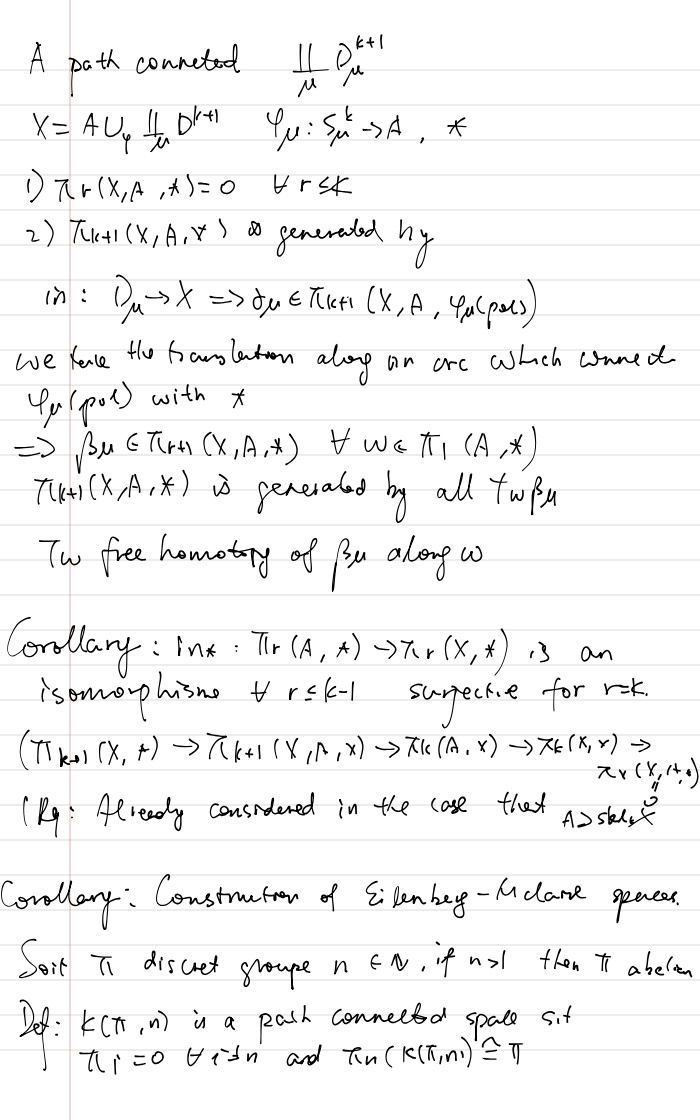 A path conneted ∐_μ D_μ^{k+1}
X = A ∪_φ ∐_μ D^{k+1} φ_μ : S_μ^k -> A , *
1) π_r (X, A, *) = 0 ∀ r ≤ k
2) π_{k+1} (X, A, *) is generated by
in : D_μ -> X => γ_μ ∈ π_{k+1} (X, A, φ_μ(pol))
we take the translation along an arc which connect
φ_μ(pol) with *
=> β_μ ∈ π_{r+1} (X, A, *) ∀ w ∈ π_1 (A, *)
π_{k+1} (X, A, *) is generated by all T_w β_μ
T_w free homotopy of β_μ along ω
Corollary : in_* : π_r (A, *) -> π_r (X, *) is an
isomorphisme ∀ r ≤ k-1 surjective for r=k.
(π_{k+1} (X, *) -> π_{k+1} (X, A, *) -> π_k (A, *) -> π_k (X, *) ->
π_k (X, A, *)
= 0
(Rq : Already considered in the case that A ⊃ skel_k X
Corollary : Construction of Eilenbeg - Mclane spaces.
Soit π discret groupe n ∈ N, if n>1 then π abelian
Def : K(π, n) is a path connected space s.t
π_i = 0 ∀ i ≠ n and π_n (K(π, n)) ≅ π